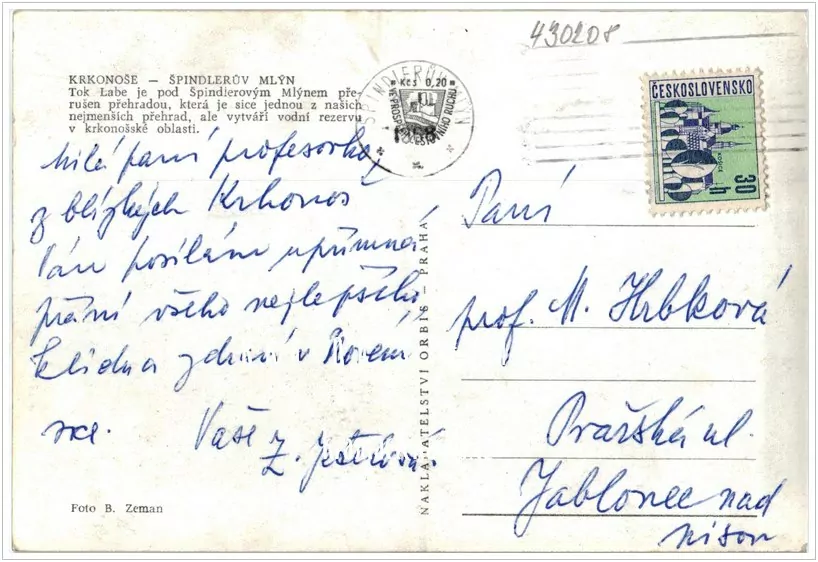 430208
KRKONOŠE — ŠPINDLERŮV MLÝN
Tok Labe je pod Špindlerovým Mlýnem pře-
rušen přehradou, která je sice jednou z našich
nejmenších přehrad, ale vytváří vodní rezervu
v krkonošské oblasti.
Milá paní profesorko,
z blízkých Krkonoš
Vám posílám upřímná
přání všeho nejlepšího
klidu a zdraví v Novém
roce.
Vaše
Z.
Foto B. Zeman
NAKLADATELSTVÍ ORBIS — PRAHA
ŠPINDLERŮV MLÝN
Kčs 0,20
1968
ČESKOSLOVENSKO
KOŠICE
30 h
Paní
prof. M. Hrbková
Pražská ul.
Jablonec nad
Nisou